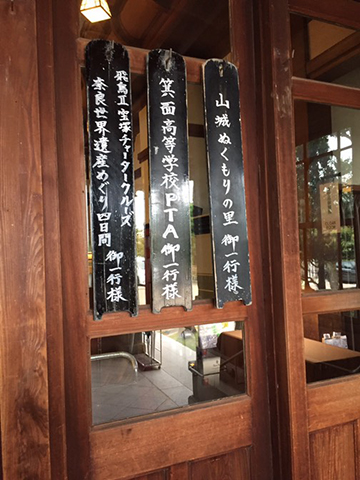 山城ぬくもりの里 御一行様
箕面高等学校PTA御一行様
飛鳥Ⅱ宝塚チャータークルーズ
奈良世界遺産めぐり四日間 御一行様